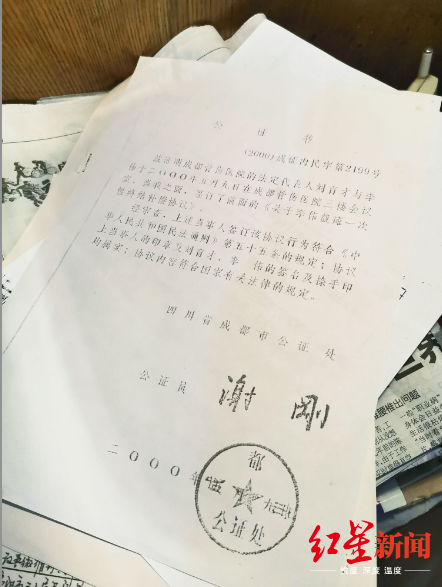 公证书
(2000)成证内民字第2199号
兹证明成都骨伤医院的法定代表人刘育才与李
伟于二〇〇〇年五月九日在成都骨伤医院三楼会议
室，当我之面，签订了前面的《关于李伟截瘫一次
性终结补偿协议》。
经审查，上述当事人签订该协议行为符合《中
华人民共和国民法通则》第五十五条的规定；协议
上当事人的印章及刘育才、李伟的签名及捺手印
均属实；协议内容符合国家有关法律的规定。
四川省成都市公证处
公证员 谢刚
二〇〇〇年
都
公证处
腰椎出问题
红星新闻
态度 深度 温度